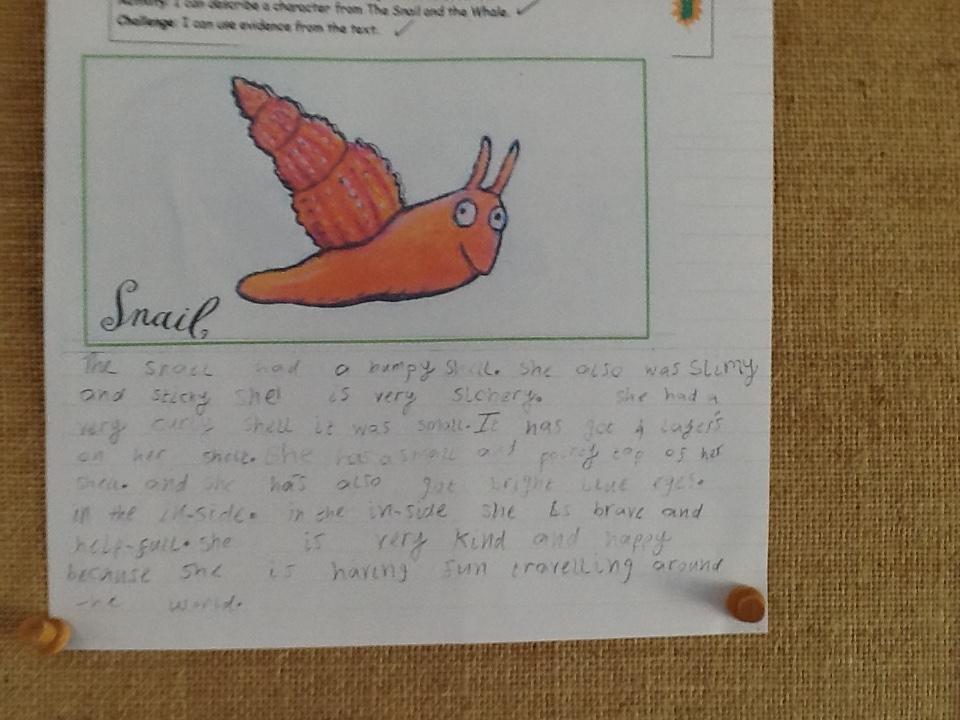 Activity: I can describe a character from The Snail and the Whale.
Challenge: I can use evidence from the text.
Snail
The snail had a bumpy shell. She also was slimy
and sticky she is very slchery. she had a
very curly shell it was small. It has got 4 layers
on her shell. She has a small and pointy top of her
shell. and she has also got bright blue eyes.
in the in-side. in the in-side she is brave and
help-full. she is very kind and happy
because she is having fun travelling around
the world.